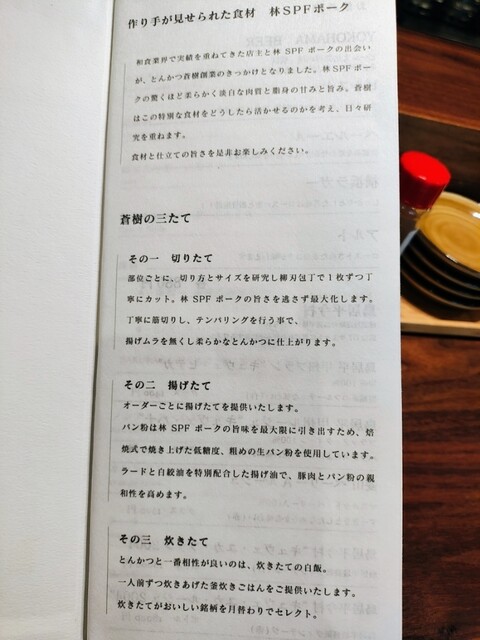 作り手が見せられた食材　林SPFポーク
和食業界で実績を重ねてきた店主と林 SPF ポークの出会い
が、とんかつ蒼樹創業のきっかけとなりました。林 SPF ポー
クの驚くほど柔らかく淡白な肉質と脂身の甘みと旨み。蒼樹
はこの特別な食材をどうしたら活かせるのかを考え、日々研
究を重ねます。
食材と仕立ての旨さを是非お楽しみください。
蒼樹の三たて
その一　切りたて
部位ごとに、切り方とサイズを研究し柳刃包丁で1枚ずつ丁
寧にカット。林 SPF ポークの旨さを逃さず最大化します。
丁寧に筋切りし、テンパリングを行う事で、
揚げムラを無くし柔らかなとんかつに仕上がります。
その二　揚げたて
オーダーごとに揚げたてを提供いたします。
パン粉は林 SPF ポークの旨味を最大限に引き出すため、焙
焼式で焼き上げた低糖度、粗めの生パン粉を使用しています。
ラードと白絞油を特別配合した揚げ油で、豚肉とパン粉の親
和性を高めます。
その三　炊きたて
とんかつと一番相性が良いのは、炊きたての白飯。
一人前ずつ炊きあげた釜炊きごはんをご提供いたします。
炊きたてがおいしい銘柄を月替わりでセレクト。